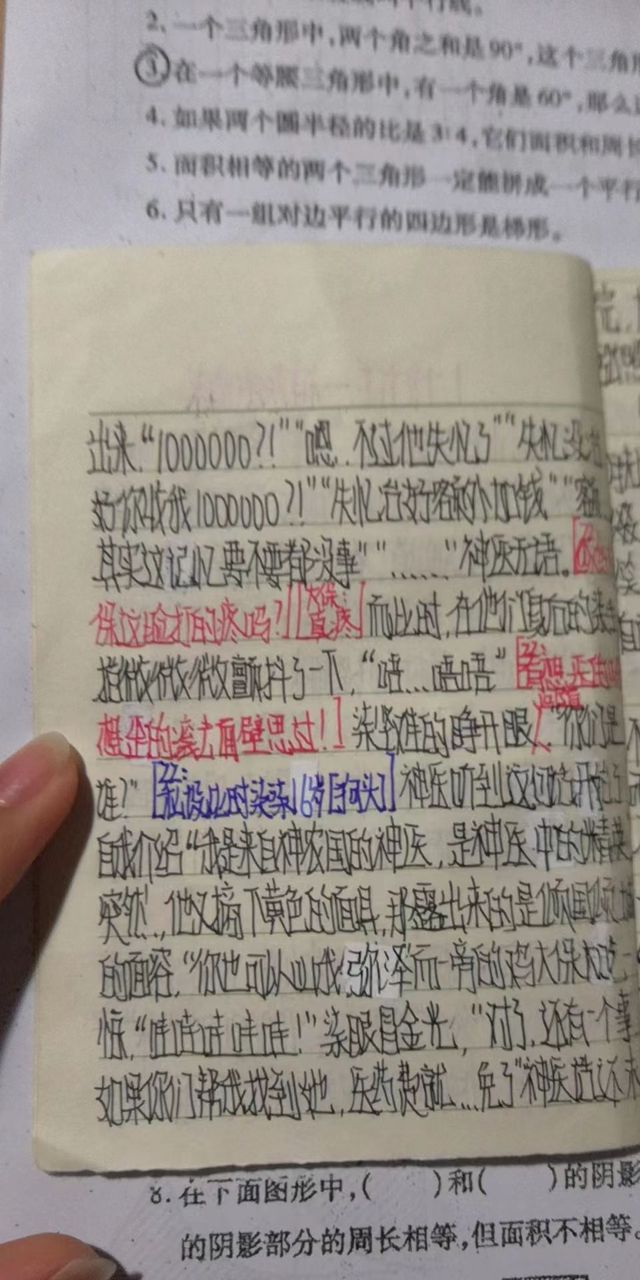 2. 一个三角形中,两个角之和是90°,这个三角形
③在一个等腰三角形中,有一个角是60°,那么
4. 如果两个圆半径的比是3:4,它们面积和周长
5. 面积相等的两个三角形一定能拼成一个平行
6. 只有一组对边平行的四边形是梯形。
出来.“1000000?!”“嗯..不过他失忆了”“失忆没
好你收我1000000?!”“失忆治好需额外加钱”
其实这记忆要不要都没事”“……”神医无语。
保这脸打的疼吗?大保:直疼 而此时,在他们身后的染
指微微微颤抖了一下,“唔...唔唔”
想歪的滚去面壁思过!]染艰难的睁开眼,“你们是
谁?”[私设此时染染16岁[狗头]]神医听到这句话开始了
自我介绍“我是来自神农国的神医,是神医中的精
突然.,他又摘下黄色的面具,那露出来的是倾国倾
的面容,“你也可以叫我弥泽而一旁的鸡大保大吃一
惊,“哇哇哇哇哇!”染眼冒金光,“对了,还有一个事
如果你们帮我找到她,医药费就...免了”神医道还未
8. 在下面图形中,( )和( )的阴影
的阴影部分的周长相等,但面积不相等。